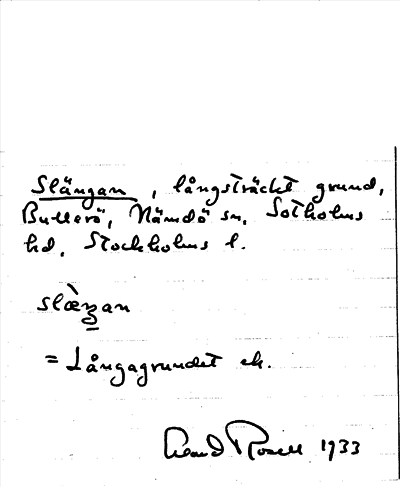 Slängan, långsträckt grund,
Bullerö, Nämdö sn, Sotholms
hd, Stockholms l.
slæ̀ŋan
= Långagrundet ek.
Rosell 1933